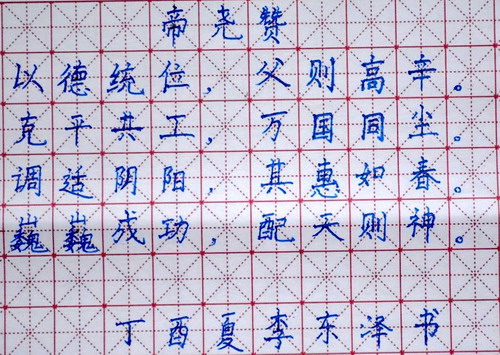 帝尧赞
以德统位，父则高辛。
克平共工，万国同尘。
调适阴阳，其惠如春。
巍巍成功，配天则神。
丁酉夏李东泽书